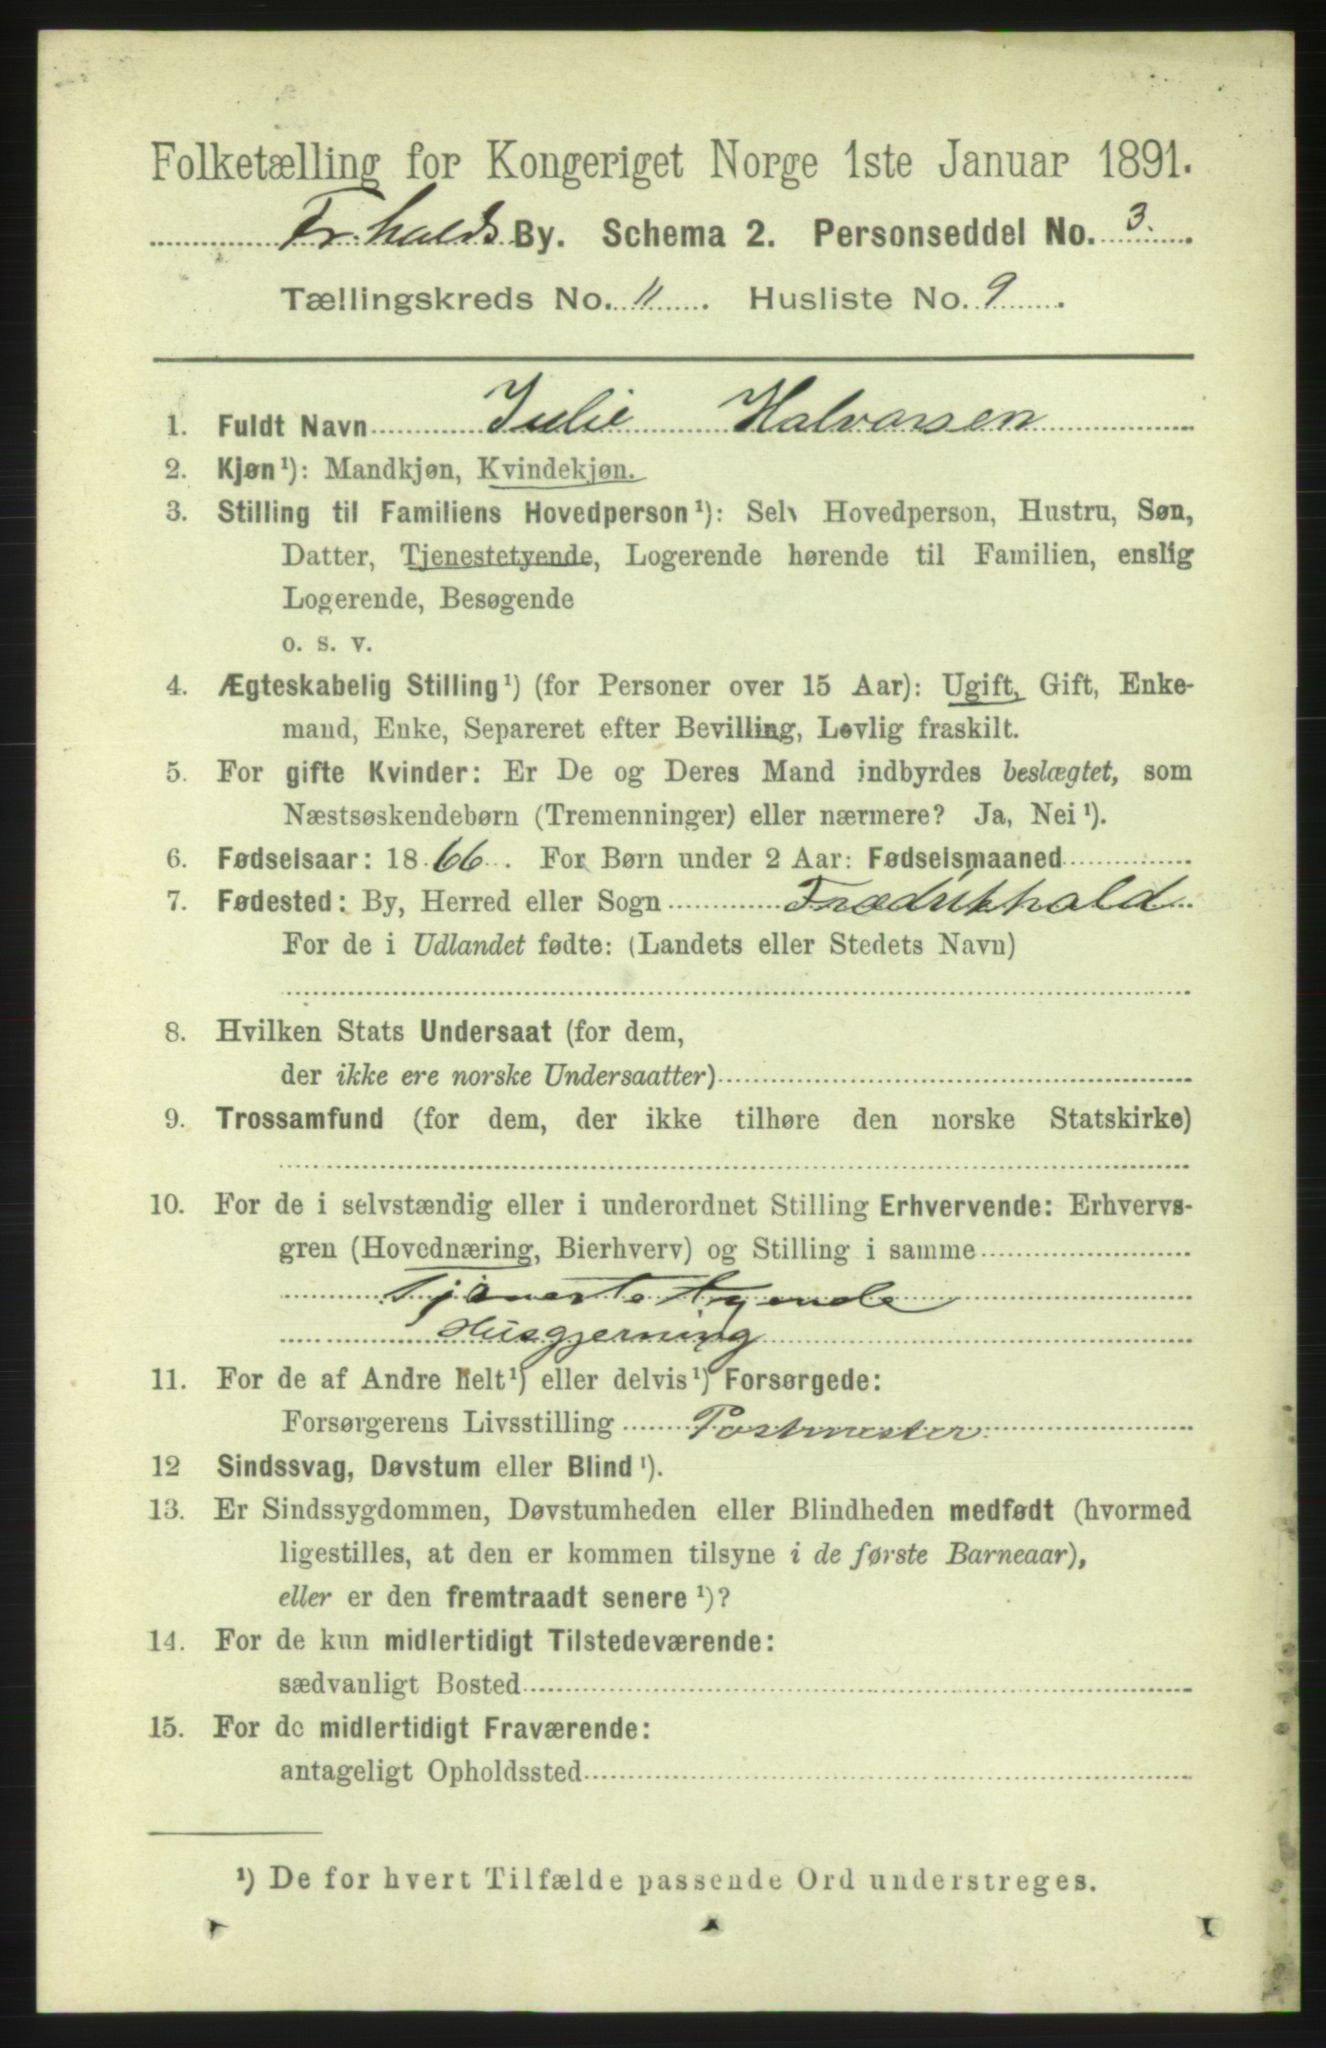 Folketælling for Kongeriget Norge 1ste Januar 1891.
Fr.halds By. Schema 2. Personseddel No. 3.
Tællingskreds No. 11. Husliste No. 9.
1. Fuldt Navn Julie Halvorsen
2. Kjøn¹): Mandkjøn, Kvindekjøn.
3. Stilling til Familiens Hovedperson¹): Selv Hovedperson, Hustru, Søn,
Datter, Tjenestetyende, Logerende hørende til Familien, enslig
Logerende, Besøgende
o. s. v.
4. Ægteskabelig Stilling¹) (for Personer over 15 Aar): Ugift, Gift, Enke-
mand, Enke, Separeret efter Bevilling, Lovlig fraskilt.
5. For gifte Kvinder: Er De og Deres Mand indbyrdes beslægtet, som
Næstsøskendebørn (Tremenninger) eller nærmere? Ja, Nei¹).
6. Fødselsaar: 1866. For Børn under 2 Aar: Fødselsmaaned
7. Fødested: By, Herred eller Sogn Fredrikhald
For de i Udlandet fødte: (Landets eller Stedets Navn)
8. Hvilken Stats Undersaat (for dem,
der ikke ere norske Undersaatter)
9. Trossamfund (for dem, der ikke tilhøre den norske Statskirke)
10. For de i selvstændig eller i underordnet Stilling Erhvervende: Erhvervs-
gren (Hovednæring, Bierhverv) og Stilling i samme
Tjenestetyende
Husgjerning
11. For de af Andre helt¹) eller delvis¹) Forsørgede:
Forsørgerens Livsstilling Postmester
12 Sindssvag, Døvstum eller Blind¹).
13. Er Sindssygdommen, Døvstumheden eller Blindheden medfødt (hvormed
ligestilles, at den er kommen tilsyne i de første Barneaar),
eller er den fremtraadt senere¹)?
14. For de kun midlertidigt Tilstedeværende:
sædvanligt Bosted
15. For de midlertidigt Fraværende:
antageligt Opholdssted
¹) De for hvert Tilfælde passende Ord understreges.